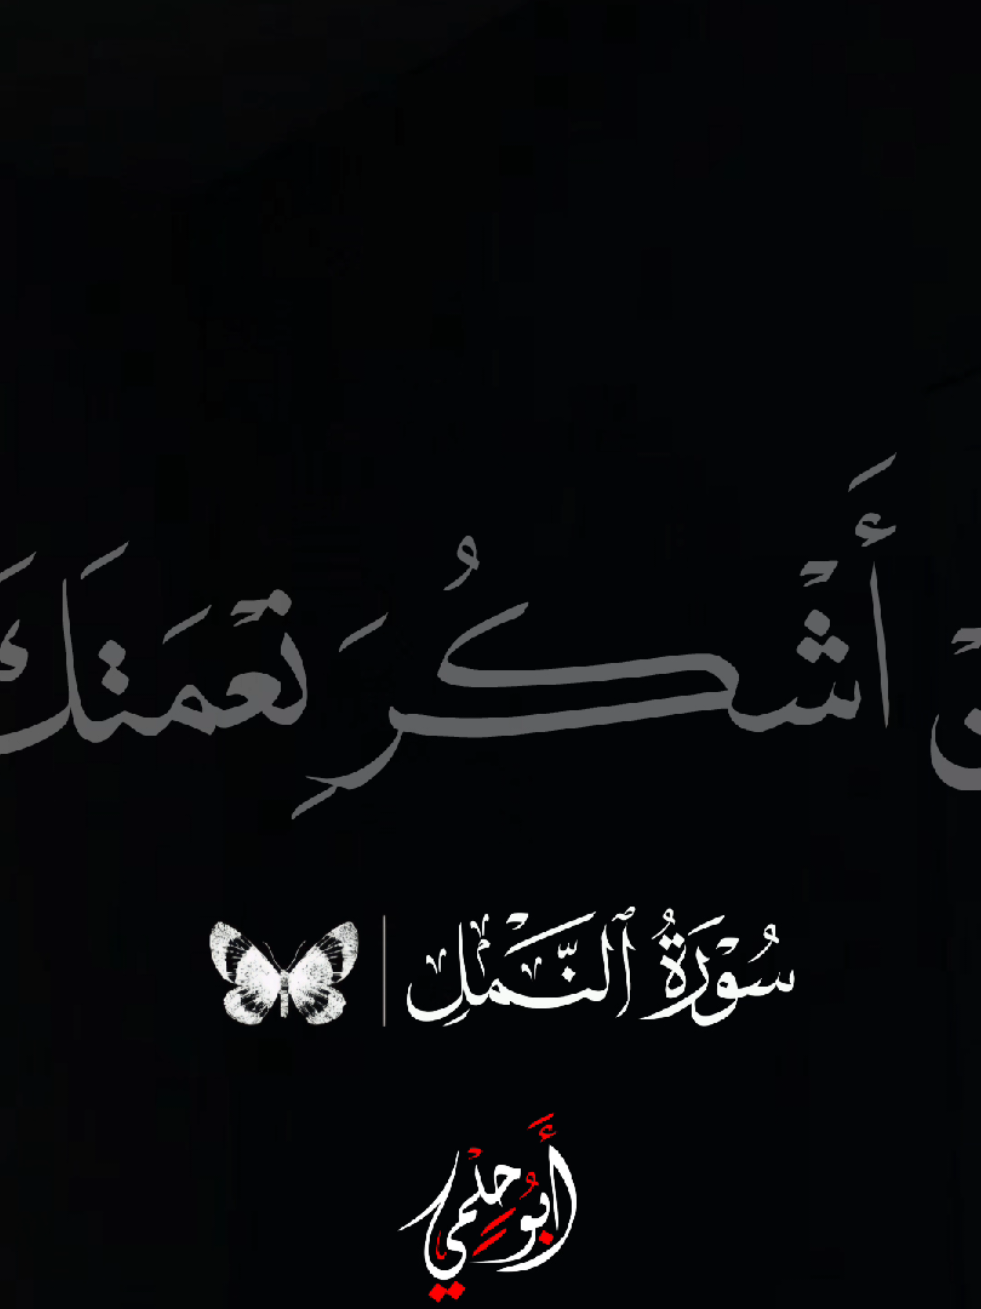 أَشْكُرَ نِعْمَتَكَ
سُوْرَةُ ٱلنَّمْلِ
أَبُو حِلْمِي